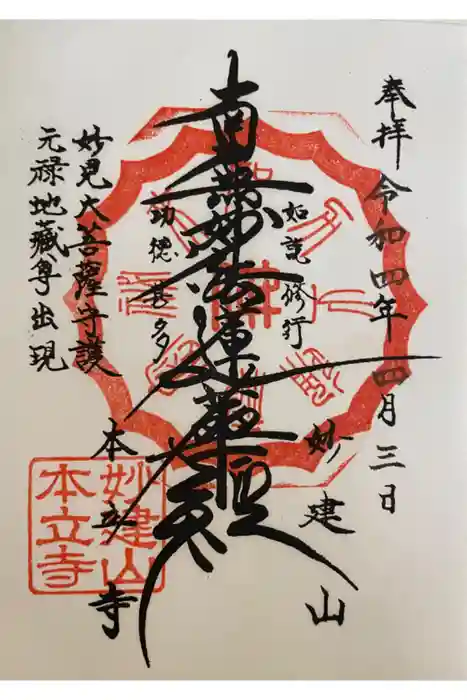 奉拝 令和四年 四月三日
妙建山
如説修行
南無妙法蓮華経
功徳甚多
本立寺
妙見大菩薩守護
元禄地蔵尊出現
妙建山
本立寺